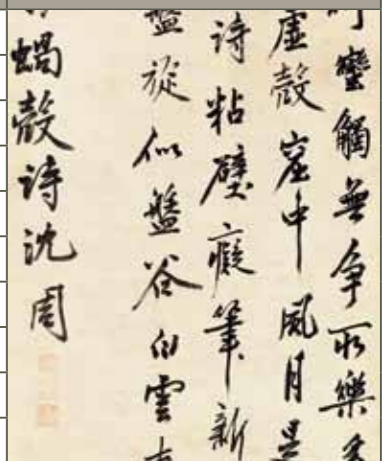 蠻觸無爭所樂多
虛殼窟中風月是
詩粘壁癡筆新
盤旋似盤谷白雲
蝸殼詩沈周